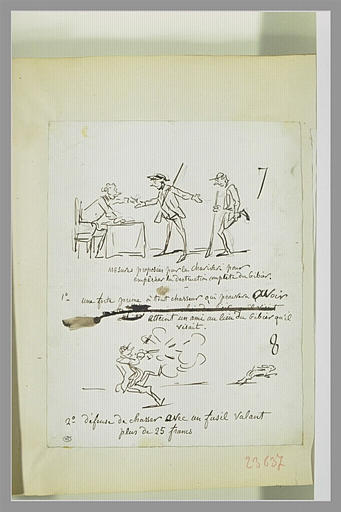 7
Mesures proposées par le Charivari pour
empêcher la destruction complète du Gibier.
1º une forte prime à tout chasseur qui prouvera avoir
atteint un ami au lieu du Gibier qu'il
visait.
8
2º défense de chasser avec un fusil valant
plus de 25 francs
23637